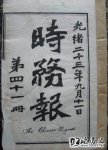 光緒二十三年九月十一日
時務報
第四十一冊
The Chinese Progress